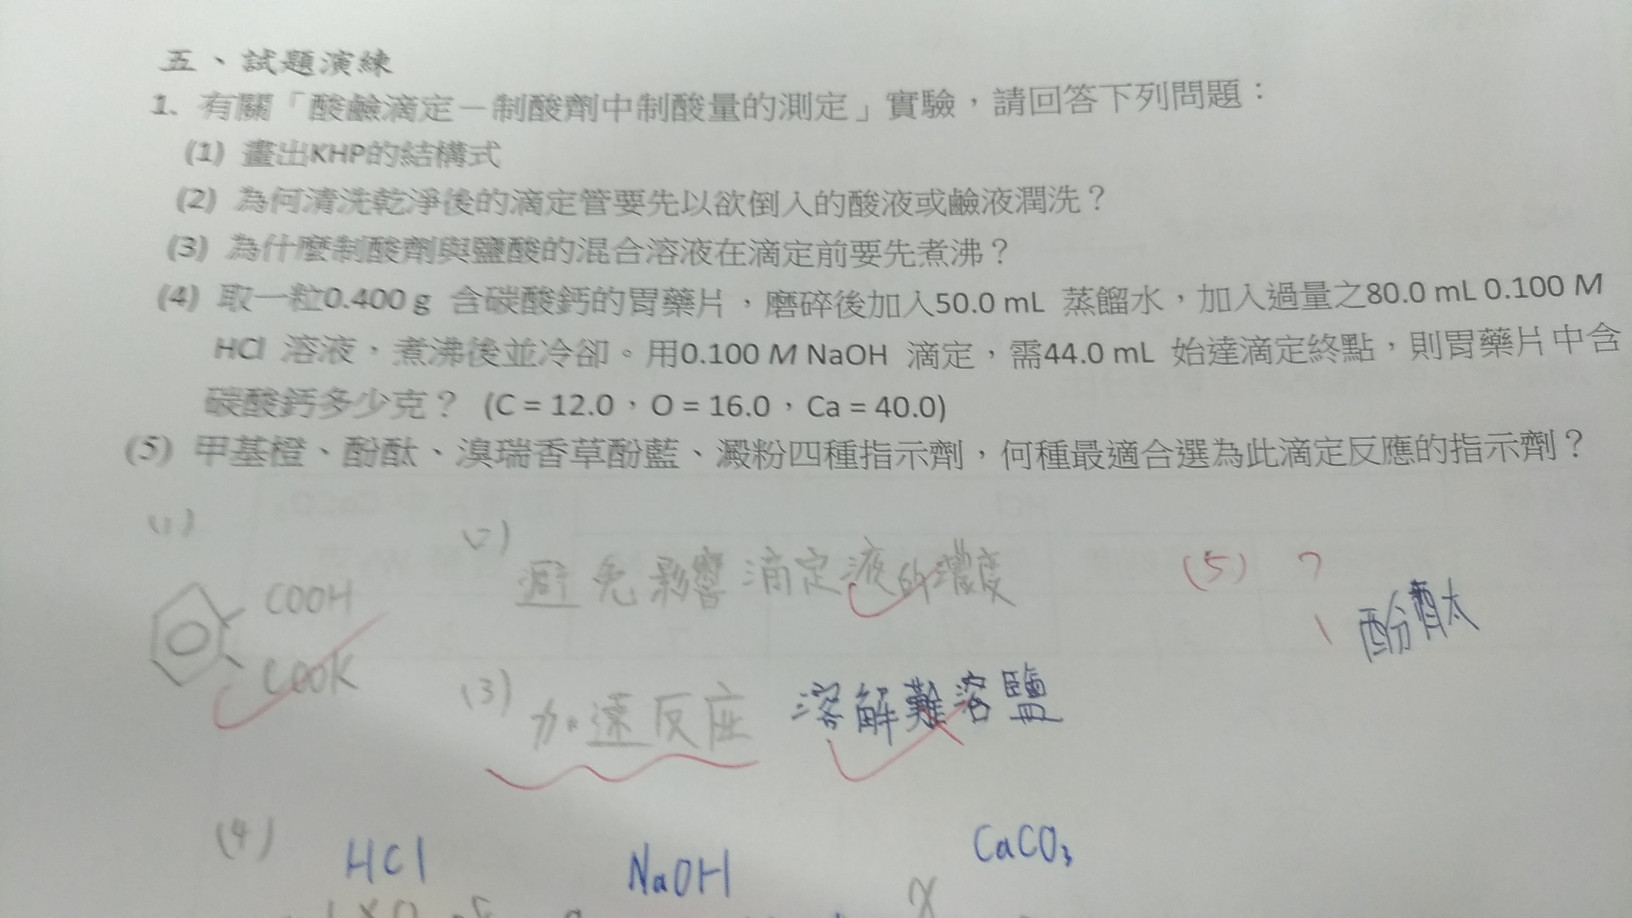 五、試題演練
1、有關「酸鹼滴定－制酸劑中制酸量的測定」實驗，請回答下列問題：
(1) 畫出KHP的結構式
(2) 為何清洗乾淨後的滴定管要先以欲倒入的酸液或鹼液潤洗？
(3) 為什麼制酸劑與鹽酸的混合溶液在滴定前要先煮沸？
(4) 取一粒0.400 g 含碳酸鈣的胃藥片，磨碎後加入50.0 mL 蒸餾水，加入過量之80.0 mL 0.100 M
HCl 溶液，煮沸後並冷卻。用0.100 M NaOH 滴定，需44.0 mL 始達滴定終點，則胃藥片中含
碳酸鈣多少克？ (C = 12.0，O = 16.0，Ca = 40.0)
(5) 甲基橙、酚酞、溴瑞香草酚藍、澱粉四種指示劑，何種最適合選為此滴定反應的指示劑？
(1)
COOH
COOK
(2)
避免影響滴定液的濃度
(5) ?
酚酞
(3)
加速反应 溶解難溶鹽
(4)
HCl NaOH CaCO₃